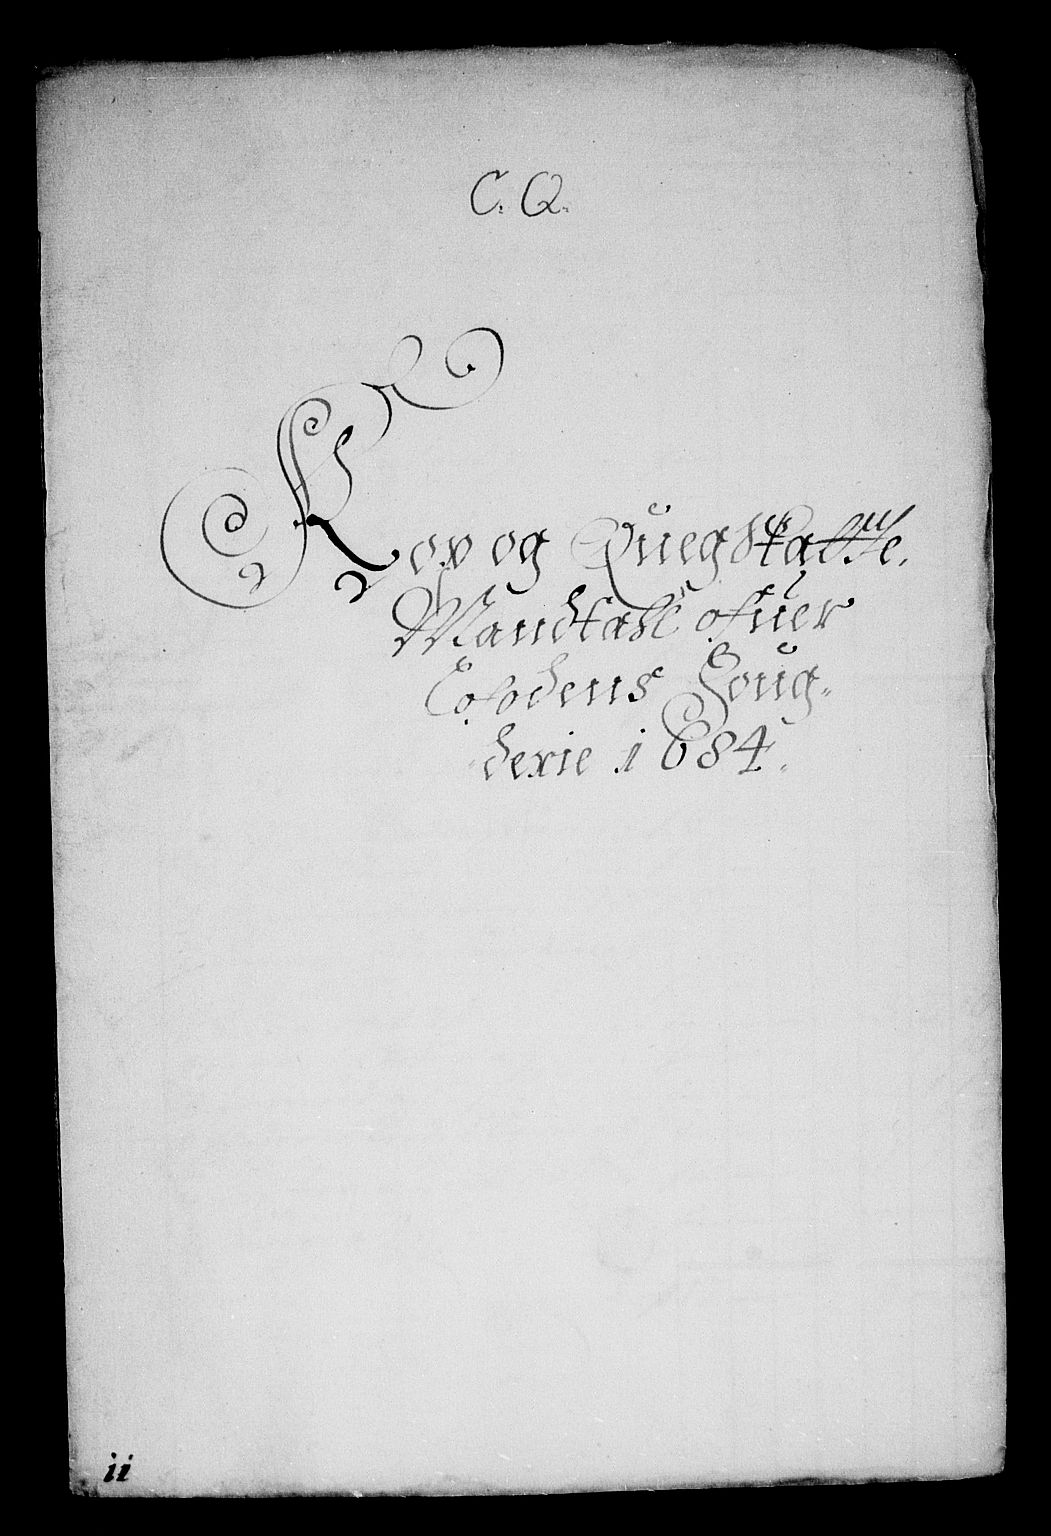 C. Q.
Kov og Quegskatte
Mandtall ofuer
Lofodens Foug-
derie 1684.
ii